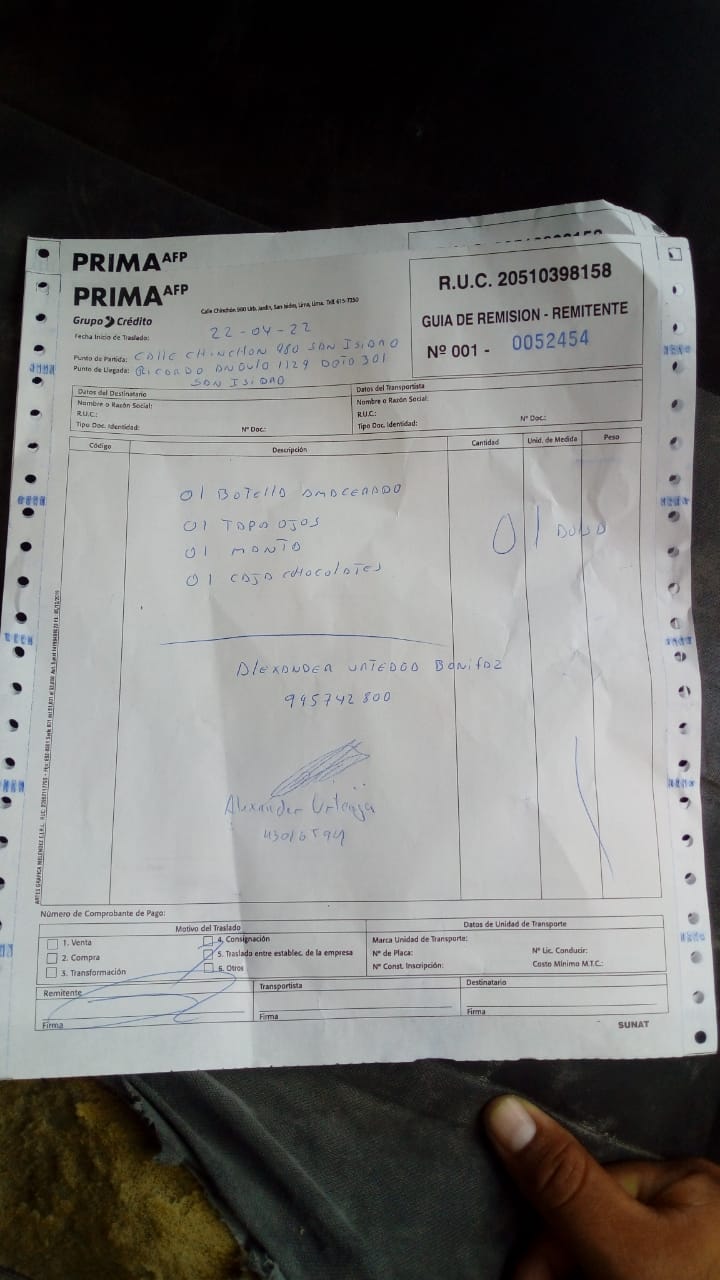 PRIMA AFP
PRIMA AFP
Grupo Crédito
Calle Chinchón 980 Urb. Jardín, San Isidro, Lima. Telf. 615-7250
R.U.C. 20510398158
GUIA DE REMISION - REMITENTE
Nº 001 - 0052454
Fecha Inicio de Traslado: 22-04-22
Punto de Partida: CALLE CHINCHON 980 SAN ISIDRO
Punto de Llegada: RICARDO ANGULO 1129 DPTO 301
SAN ISIDRO
Datos del Destinatario
Nombre o Razón Social:
R.U.C.:
Tipo Doc. Identidad: Nº Doc.:
Datos del Transportista
Nombre o Razón Social:
R.U.C.:
Tipo Doc. Identidad: Nº Doc.:
Código Descripción Cantidad Unid. de Medida Peso
01 BOTELLA MACERADO
01 TAPA OJOS
01 MANTA
01 CAJA CHOCOLATES
01
ALEXANDER URTEAGA BONIFAZ
995742800
Alexander Urteaga
Número de Comprobante de Pago:
Motivo del Traslado
1. Venta
2. Compra
3. Transformación
4. Consignación
5. Traslado entre establec. de la empresa
6. Otros
Datos de Unidad de Transporte
Marca Unidad de Transporte:
Nº de Placa: Nº Lic. Conducir:
Nº Const. Inscripción: Costo Mínimo M.T.C.:
Remitente
Firma
Transportista
Firma
Destinatario
Firma
SUNAT